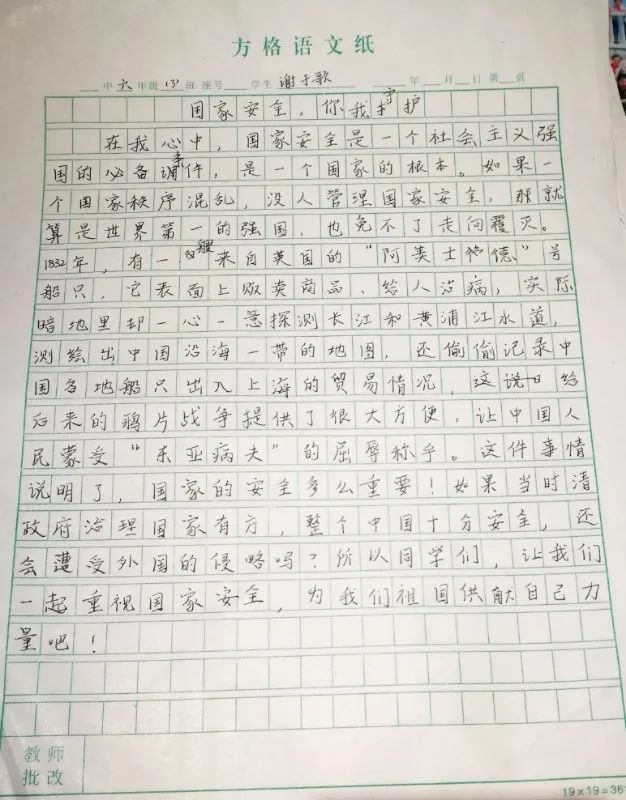 方格语文纸
中 六 年级 (3) 班 座号 学生 谢于歌 年 月 日 第 页
国家安全，你我守护
在我心中，国家安全是一个社会主义强
国的必备条件，是一个国家的根本。如果一
个国家秩序混乱，没人管理国家安全，那就
算是世界第一的强国，也免不了走向覆灭。
1832年，有一艘来自英国的“阿美士德”号
船只，它表面上贩卖商品、给人治病，实际
暗地里却一心一意探测长江和黄浦江水道，
测绘出中国沿海一带的地图，还偷偷记录中
国各地船只出入上海的贸易情况，这说给
后来的鸦片战争提供了很大方便，让中国人
民蒙受“东亚病夫”的屈辱称乎。这件事情
说明了，国家的安全多么重要！如果当时清
政府治理国家有方，整个中国十分安全，还
会遭受外国的侵略吗？所以同学们，让我们
一起重视国家安全，为我们祖国供献自己力
量吧！
教师
批改
19×19=36